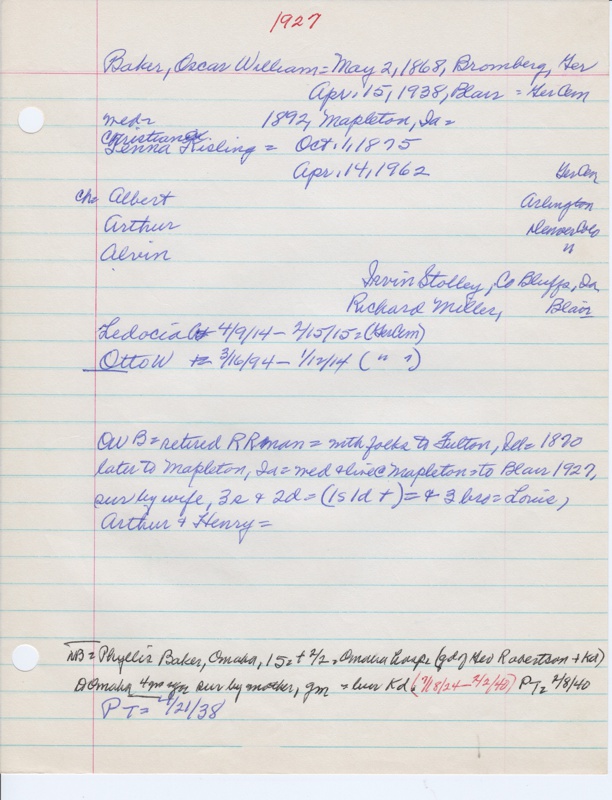 1927
Baker, Oscar William = May 2, 1868, Bromberg, Ger
Apr. 15, 1938, Blair = GerCem
med = 1892, Mapleton, Ia =
Christian
Lenna Kisling = Oct. 1, 1875
Apr. 14, 1962 GerCem
ch = Albert Arlington
Arthur Denver Colo
Alvin "
Irvin Stolley, Co Bluffs, Ia
Richard Miller, Blair
Ledocia 4/9/14 - 2/15/15 = (GerCem)
Otto W 3/16/94 - 1/12/14 ( " " )
OWB = retired RRman = with folks to Fulton, 1870
later to Mapleton, Ia = med & live Mapleton = to Blair 1927,
sur by wife, 3s & 2d = (1s 1d +) = & 3 bro = Louis,
Arthur & Henry =
NB = Phyllis Baker, Omaha, 15 = + 2/2 = Omaha hosp. (gd of Geo Robertson + Kd)
Omaha 4 mo ago sur by mother, gm = bur Kd. (3/18/24 - 2/2/40) PT = 2/8/40
PT = 4/21/38